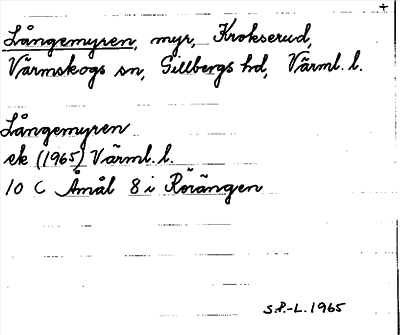 +
Långemyren, myr, Krokserud,
Värmskogs sn, Gillbergs hd, Värml. l.
Långemyren
ek (1965) Värml. l.
10 C Åmål 8 i Rörängen
S.P.-L. 1965